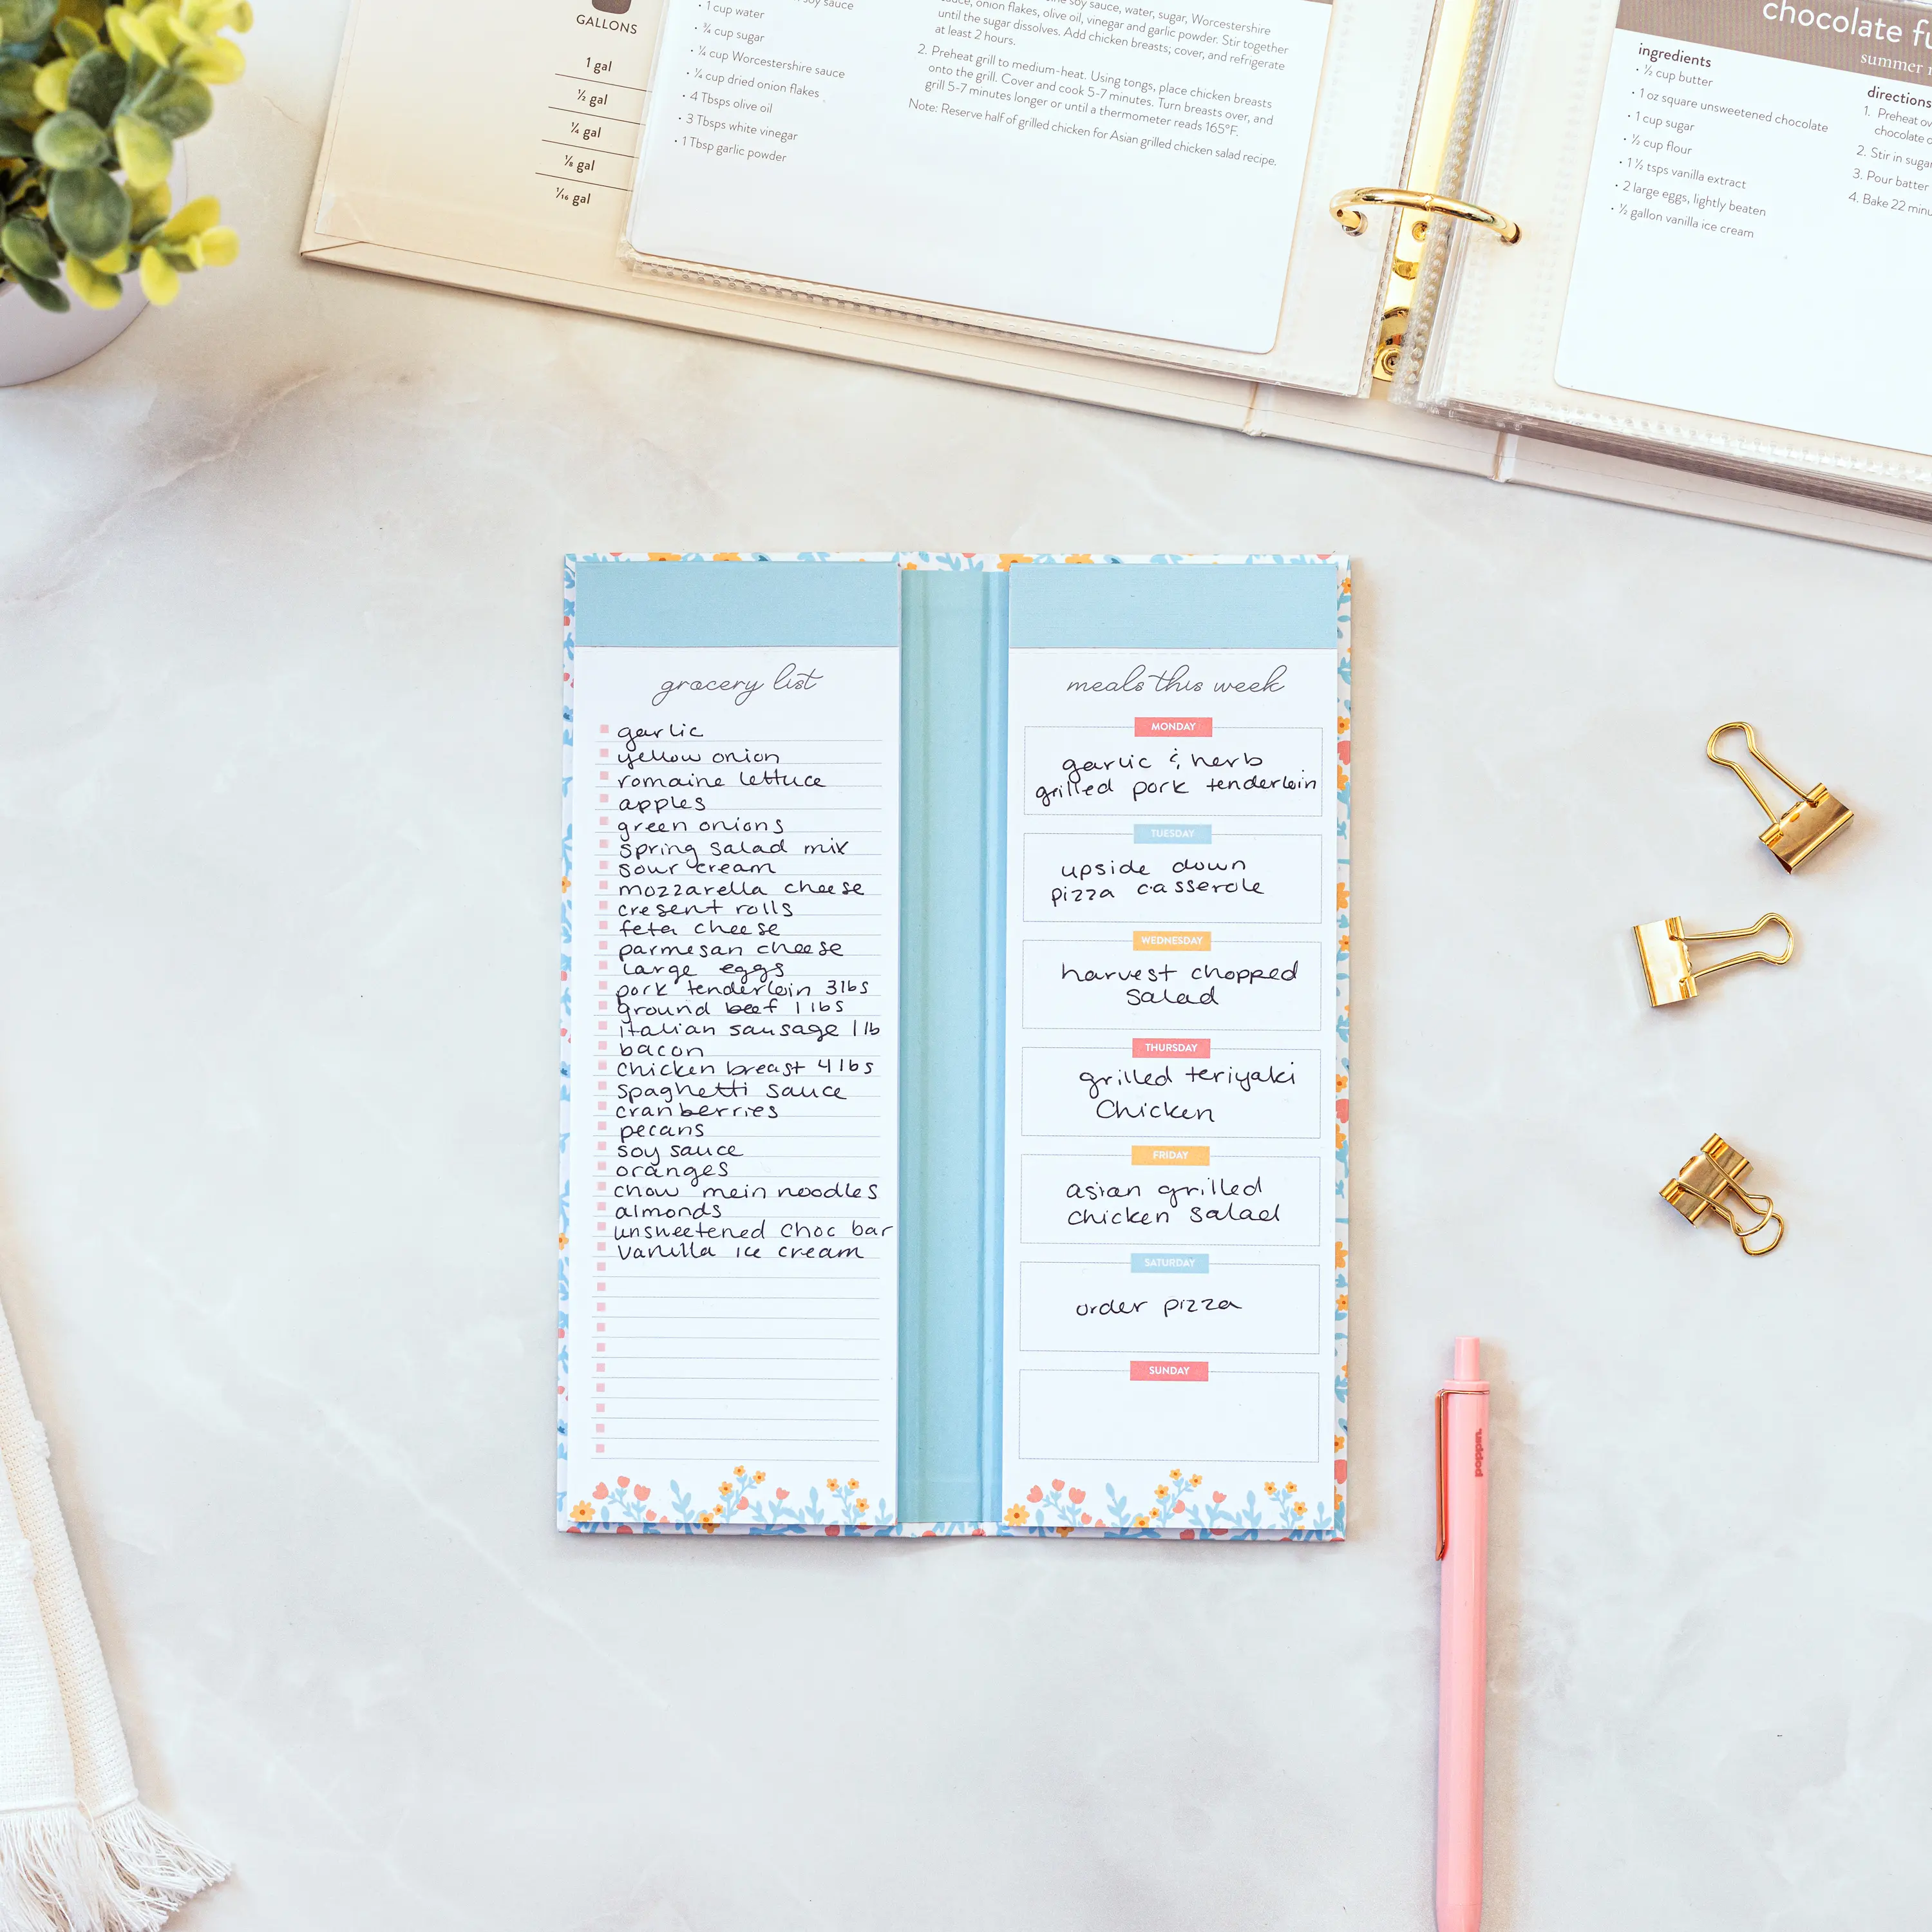 GALLONS
1 gal
½ gal
¼ gal
⅛ gal
1/16 gal
soy sauce
• 1 cup water
• ¾ cup sugar
• ¼ cup Worcestershire sauce
• ¼ cup dried onion flakes
• 4 Tbsps olive oil
• 3 Tbsps white vinegar
• 1 Tbsp garlic powder
soy sauce, water, sugar, Worcestershire
sauce, onion flakes, olive oil, vinegar and garlic powder. Stir together
until the sugar dissolves. Add chicken breasts; cover, and refrigerate
at least 2 hours.
2. Preheat grill to medium-heat. Using tongs, place chicken breasts
onto the grill. Cover and cook 5-7 minutes. Turn breasts over, and
grill 5-7 minutes longer or until a thermometer reads 165°F.
Note: Reserve half of grilled chicken for Asian grilled chicken salad recipe.
chocolate
summer
ingredients
• ½ cup butter
• 1 oz square unsweetened chocolate
• 1 cup sugar
• ½ cup flour
• 1 ½ tsps vanilla extract
• 2 large eggs, lightly beaten
• ½ gallon vanilla ice cream
directions
1. Preheat
chocolate
2. Stir in
3. Pour batter
4. Bake 22
grocery list
garlic
yellow onion
romaine lettuce
apples
green onions
spring salad mix
sour cream
mozzarella cheese
cresent rolls
feta cheese
parmesan cheese
large eggs
pork tenderloin 3lbs
ground beef 1 lbs
italian sausage 1 lb
bacon
chicken breast 4lbs
spaghetti sauce
cranberries
pecans
soy sauce
oranges
chow mein noodles
almonds
unsweetened choc bar
vanilla ice cream
meals this week
MONDAY
garlic & herb
grilled pork tenderloin
TUESDAY
upside down
pizza casserole
WEDNESDAY
harvest chopped
salad
THURSDAY
grilled teriyaki
Chicken
FRIDAY
asian grilled
chicken salad
SATURDAY
order pizza
SUNDAY
poppin.